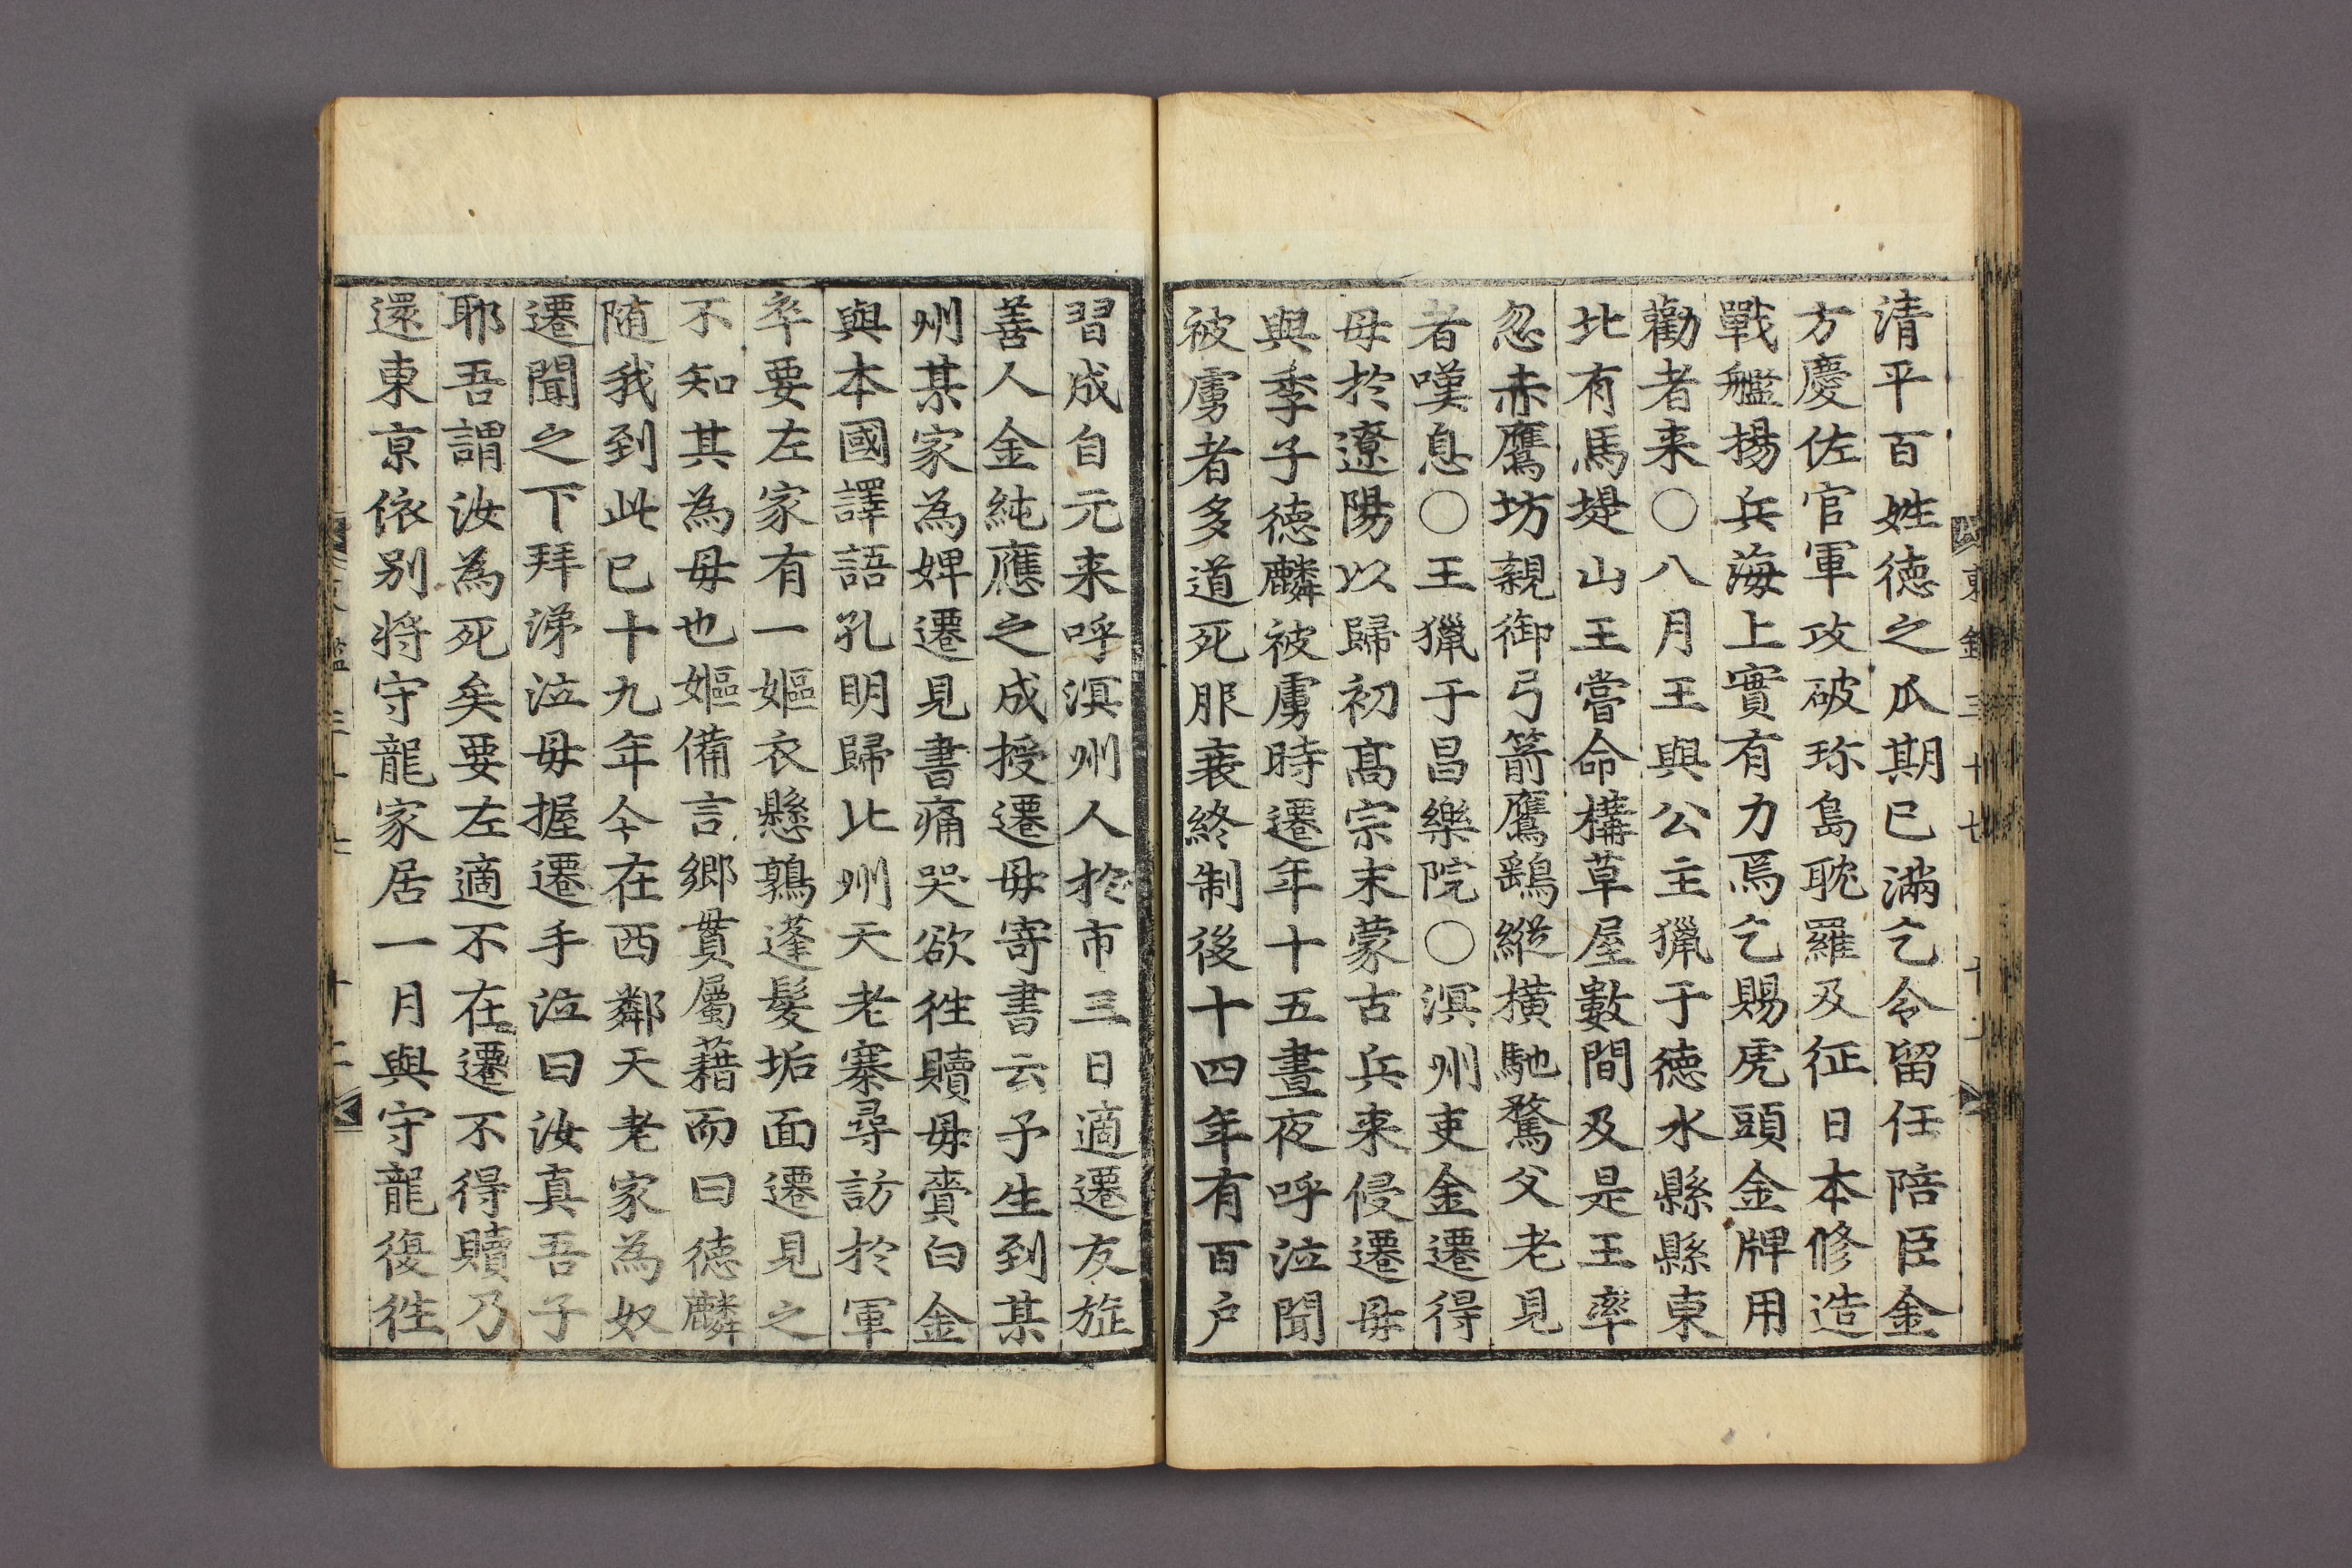 清平百姓德之瓜期已滿乞令留任陪臣金
方慶佐官軍攻破珎島耽羅及征日本修造
戰艦揚兵海上實有力焉乞賜虎頭金牌用
勸者来○八月王與公主獵于德水縣縣東
北有馬堤山王嘗命構草屋數間及是王率
忽赤鷹坊親御弓箭鷹鷂縱橫馳騖父老見
者嘆息○王獵于昌樂院○溟州吏金遷得
母於遼陽以歸初髙宗末蒙古兵来侵遷母
與季子德麟被虜時遷年十五晝夜呼泣聞
被虜者多道死服衰終制後十四年有百戶
習成自元来呼溟州人於市三日適遷友㫌
善人金純應之成授遷母寄書云予生到某
州某家為婢遷見書痛哭欲徃贖母賷白金
與本國譯語孔明歸北州天老寨尋訪於軍
卒要左家有一嫗衣懸鶉蓬髮垢面遷見之
不知其為母也嫗備言鄉貫屬藉而曰德麟
随我到此已十九年今在西鄰天老家為奴
遷聞之下拜涕泣母握遷手泣曰汝真吾子
耶吾謂汝為死矣要左適不在遷不得贖乃
還東京依别將守龍家居一月與守龍復徃
東鑑三十七